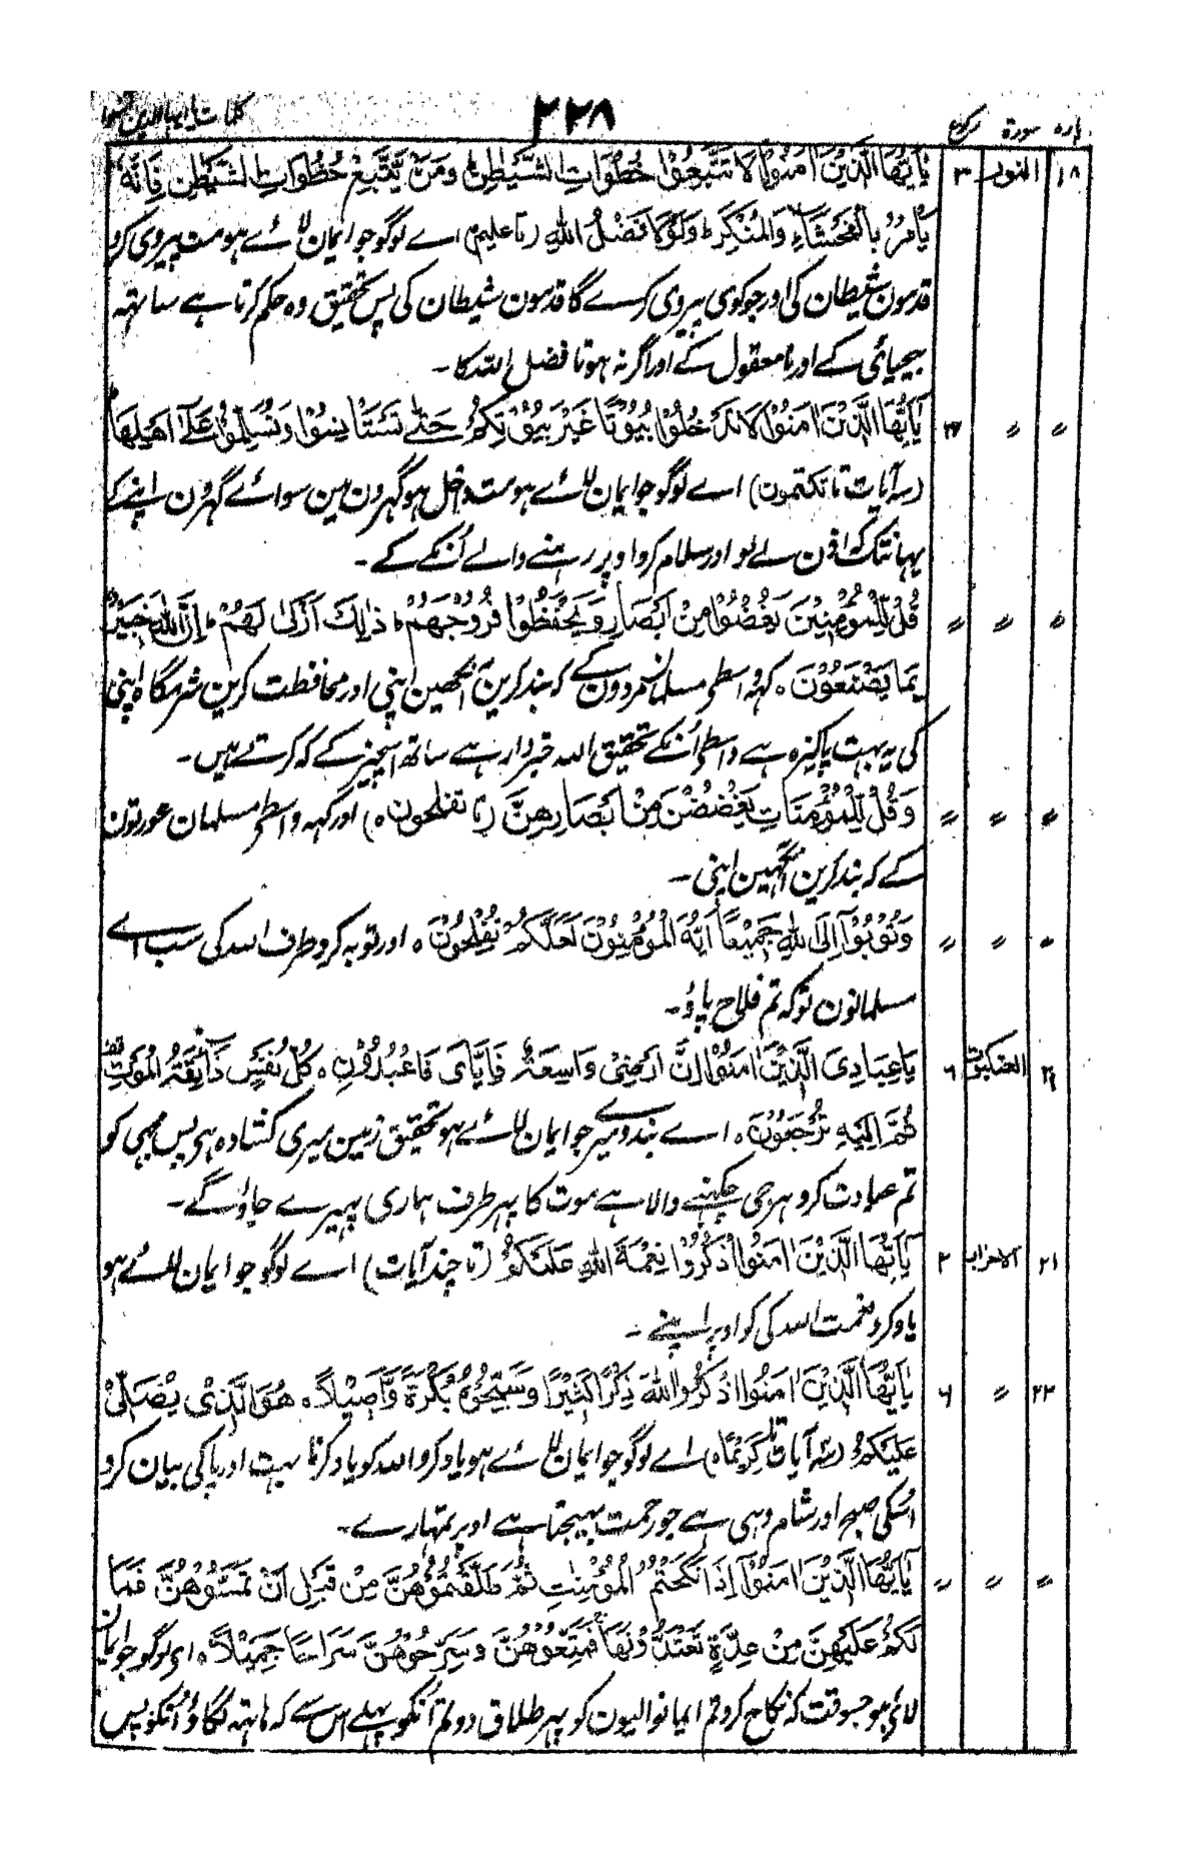 کلمات یا ایہا الذین آمنوا
۲۲۸
پارہ سورۃ رکوع
۱۸ النور ۳ یٰۤاَیُّهَا الَّذِیْنَ اٰمَنُوْا لَا تَتَّبِعُوْا خُطُوَاتِ الشَّیْطٰنِ وَمَنْ یَّتَّبِعْ خُطُوَاتِ الشَّیْطٰنِ فَاِنَّهٗ
یَاْمُرُ بِالْفَحْشَآءِ وَالْمُنْكَرِ ط وَلَوْلَا فَضْلُ اللهِ (تا علیم) اے لوگو جو ایمان لائے ہو مت پیروی کرو
قدمون شیطان کی اور جو کوی پیروی کرے گا قدمون شیطان کی پس تحقیق وہ حکم کرتا ہے ساتہہ
بیحیائی کے اور نامعقول کے اور اگر نہ ہوتا فضل اللہ کا۔
〃 〃 یٰۤاَیُّهَا الَّذِیْنَ اٰمَنُوْا لَا تَدْخُلُوْا بُیُوْتًا غَیْرَ بُیُوْتِكُمْ حَتّٰی تَسْتَاْنِسُوْا وَتُسَلِّمُوْا عَلٰۤی اَهْلِهَا
(سہ آیات تا تکتمون) اے لوگو جو ایمان لائے ہو مت داخل ہو گہرون مین سوائے گہرون اپنے کے
یہانتک کہ اذن لے لو اور سلام کرو اوپر رہنے والے اُنکے کے۔
〃 〃 〃 قُلْ لِّلْمُؤْمِنِیْنَ یَغُضُّوْا مِنْ اَبْصَارِهِمْ وَیَحْفَظُوْا فُرُوْجَهُمْ ۰ ذٰلِكَ اَزْكٰی لَهُمْ ۰ اِنَّ اللهَ خَبِیْرٌۢ
بِمَا یَصْنَعُوْنَ ۰ کہہ واسطے مسلمان مردون کے کہ بند کرین آنکھین اپنی اور محافظت کرین شرمگاہ اپنی
کی یہ بہت پاکیزہ ہے واسطے اُنکے تحقیق اللہ خبردار ہے ساتھ اسچیز کے کہ کرتے ہیں۔
〃 〃 〃 وَقُلْ لِّلْمُؤْمِنَاتِ یَغْضُضْنَ مِنْ اَبْصَارِهِنَّ (تا تفلحون ۰) اور کہہ واسطے مسلمان عورتون
کے کہ بند کرین آنکہین اپنی۔
〃 〃 〃 وَتُوْبُوْۤا اِلَی اللهِ جَمِیْعًا اَیُّهَ الْمُؤْمِنُوْنَ لَعَلَّكُمْ تُفْلِحُوْنَ ۰ اور توبہ کرو طرف اللہ کی سب اے
مسلمانون توکہ تم فلاح پاؤ۔
۲۱ العنکبوت ۶ یَاعِبَادِیَ الَّذِیْنَ اٰمَنُوْۤا اِنَّ اَرْضِیْ وَاسِعَةٌ فَاِیَّایَ فَاعْبُدُوْنِ ۰ كُلُّ نَفْسٍ ذَآئِقَةُ الْمَوْتِ
ثُمَّ اِلَیْهِ تُرْجَعُوْنَ ۰ اے بندو میرے جو ایمان لائے ہو تحقیق زمین میری کشادہ ہی پس مجہی کو
تم عبادت کرو ہر جی چکہنے والا ہے موت کا پہر طرف ہماری پہیرے جاؤگے۔
۲۱ الاحزاب ۲ یٰۤاَیُّهَا الَّذِیْنَ اٰمَنُوا اذْكُرُوْا نِعْمَةَ اللهِ عَلَیْكُمْ (تا چند آیات) اے لوگو جو ایمان لائے ہو
یاد کرو نعمت اللہ کی کو اوپر اپنے۔
۲۲ 〃 ۶ یٰۤاَیُّهَا الَّذِیْنَ اٰمَنُوا اذْكُرُوا اللهَ ذِكْرًا كَثِیْرًا وَّسَبِّحُوْهُ بُكْرَةً وَّاَصِیْلًا ۰ هُوَ الَّذِیْ یُصَلِّیْ
عَلَیْكُمْ (سہ آیات تا كَرِیْمًا ۰) اے لوگو جو ایمان لائے ہو یاد کرو اللہ کو یاد کرنا بہت اور پاکی بیان کرو
اُسکی صبح اور شام وہی ہے جو رحمت بہیجتا ہے اوپر تمہارے۔
〃 〃 〃 یٰۤاَیُّهَا الَّذِیْنَ اٰمَنُوْۤا اِذَا نَكَحْتُمُ الْمُؤْمِنٰتِ ثُمَّ طَلَّقْتُمُوْهُنَّ مِنْ قَبْلِ اَنْ تَمَسُّوْهُنَّ فَمَا
لَكُمْ عَلَیْهِنَّ مِنْ عِدَّةٍ تَعْتَدُّوْنَهَا فَمَتِّعُوْهُنَّ وَسَرِّحُوْهُنَّ سَرَاحًا جَمِیْلًا ۰ ای لوگو جو ایمان
لائے ہو جسوقت کہ نکاح کرو تم ایمانوالیون کو پہر طلاق دو تم اُنکو پہلے اس سے کہ ہاتہہ لگاؤ اُنکو پس